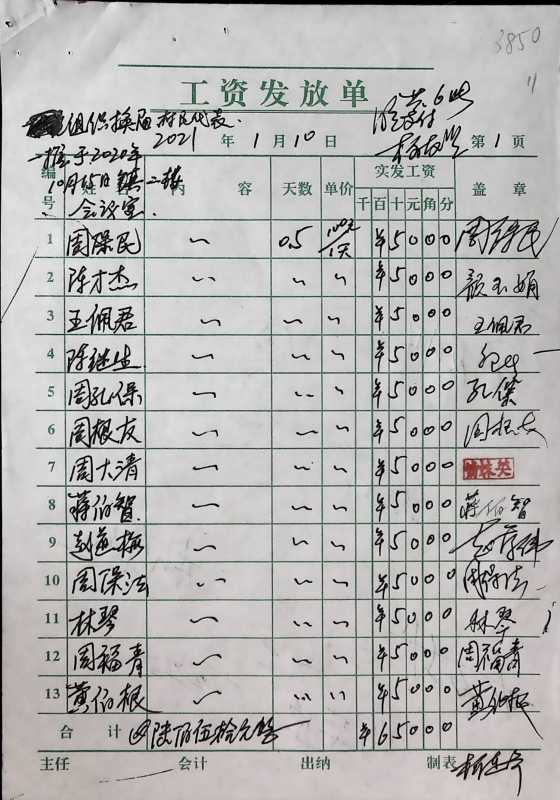 3850
工资发放单
组织换届 村民代表
2021 年 1 月 10 日 第 1 页
推于2020年
10月 日镇二楼
会议室
编号 姓名 内容 天数 单价 实发工资 盖章
千 百 十 元 角 分
1 周保民 〃 0.5 100元/天 ¥5000
2 陈才杰 〃 〃 〃 ¥5000 颜玉娟
3 王佩君 〃 〃 〃 ¥5000 王佩君
4 陈继生 〃 〃 〃 ¥5000
5 周孔保 〃 〃 〃 ¥5000 孔保
6 周根友 〃 〃 〃 ¥5000 周根友
7 周大清 〃 〃 〃 ¥5000
8 蒋伯智 〃 〃 〃 ¥5000 蒋伯智
9 赵 梅 〃 〃 〃 ¥5000
10 周保法 〃 〃 〃 ¥5000 周保法
11 林琴 〃 〃 〃 ¥5000 林琴
12 周福青 〃 〃 〃 ¥5000 周福青
13 黄伯根 〃 〃 〃 ¥5000 黄伯根
合计 陆佰伍拾元整 ¥65000
主任 会计 出纳 制表